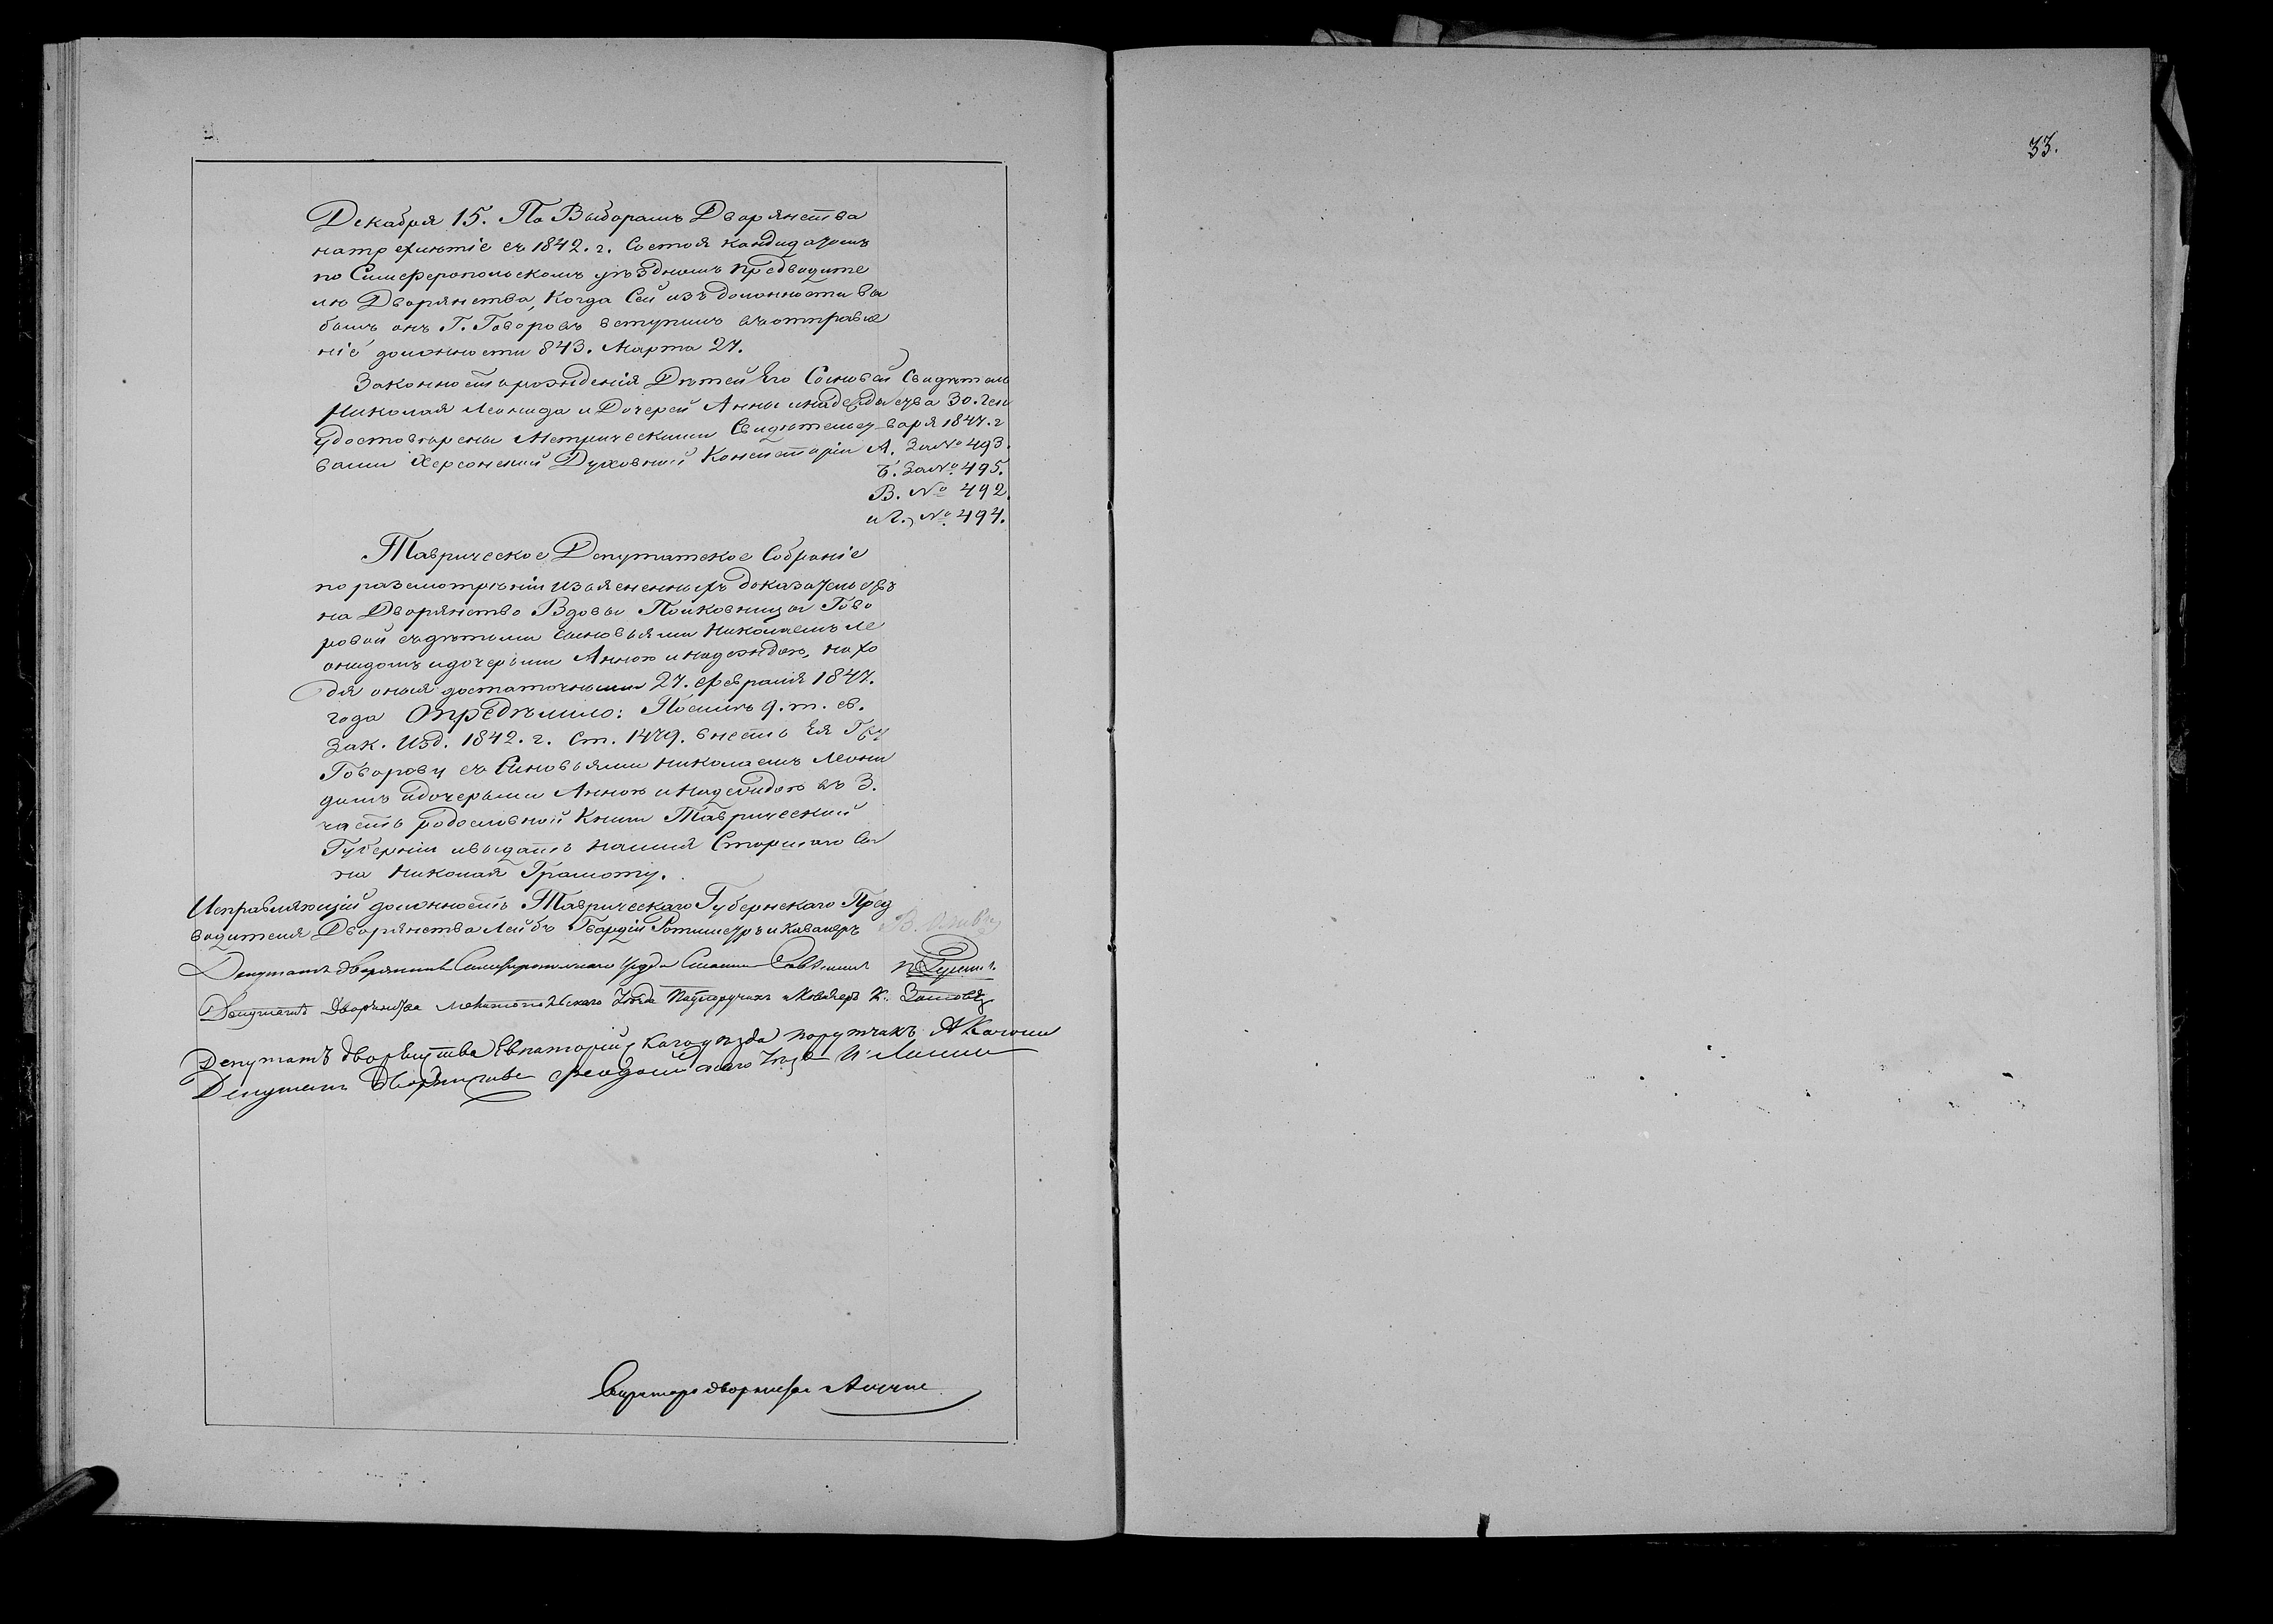 33.
Декабря 15. По Выборамъ Дворянства
на трехлѣтіе съ 1842. г. Состоя кандидатомъ
по Симферопольскомъ уѣздномъ предводите
лю Дворянства, Когда Сей изъ должности вы
былъ онъ Г. Говоровъ вступилъ въ отправле
ніе должности 843. Марта 27.
Законность рожденія Дѣтей Его Сыновей
Николая Леонида и Дочерей Анны и Надежды
Удостовѣрены Метрическими Свидѣтельст
вами Херсонской Духовной Консисторіи
Свидѣтель
ства 30. Ген
варя 1847. г
А. За № 493.
Б. За № 495.
В. № 492.
и Г., № 494.
Таврическое Депутатское Собраніе
по разсмотрѣніи изъясненныхъ доказательствъ
на Дворянство Вдовы Полковницы Гово
ровой съ дѣтьми сыновьями Николаемъ Ле
онидомъ и дочерьми Анною и Надеждою, нахо
дя оныя достаточными 27. Февраля 1847.
года Опредѣлило: По силѣ 9. т. св.
Зак. Изд. 1842. г. Ст. 1479. внесть Ея Г-жу
Говорову съ Сыновьями Николаемъ Леони
домъ и дочерьми Анною и Надеждою въ 3.
часть родословной Книги Таврической
Губерніи и выдать на имя Старшаго Сы
на Николая Грамоту.
Исправляющій должность Таврическаго Губернскаго Пред
водителя Дворянства Лейбъ Гвардіи Ротмистръ и Кавалеръ В.
Депутатъ Дворянства Симферопольскаго Уѣзда Совѣтникъ
Депутатъ Дворянства Мелитопольскаго Уѣзда Подпоручикъ и Кавалеръ К.
Депутатъ дворянства Евпаторійскаго уѣзда поручикъ А Качони
Депутатъ Дворянства Феодосійскаго Уѣзда
Секретарь дворянства